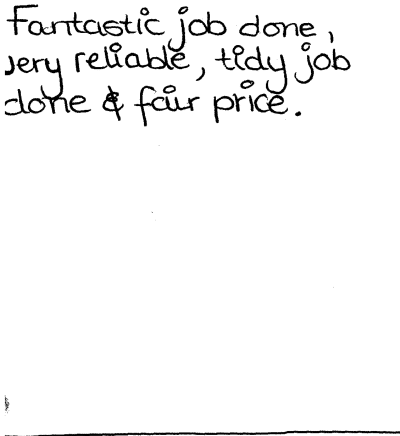 Fantastic job done,
very reliable, tidy job
done & fair price.